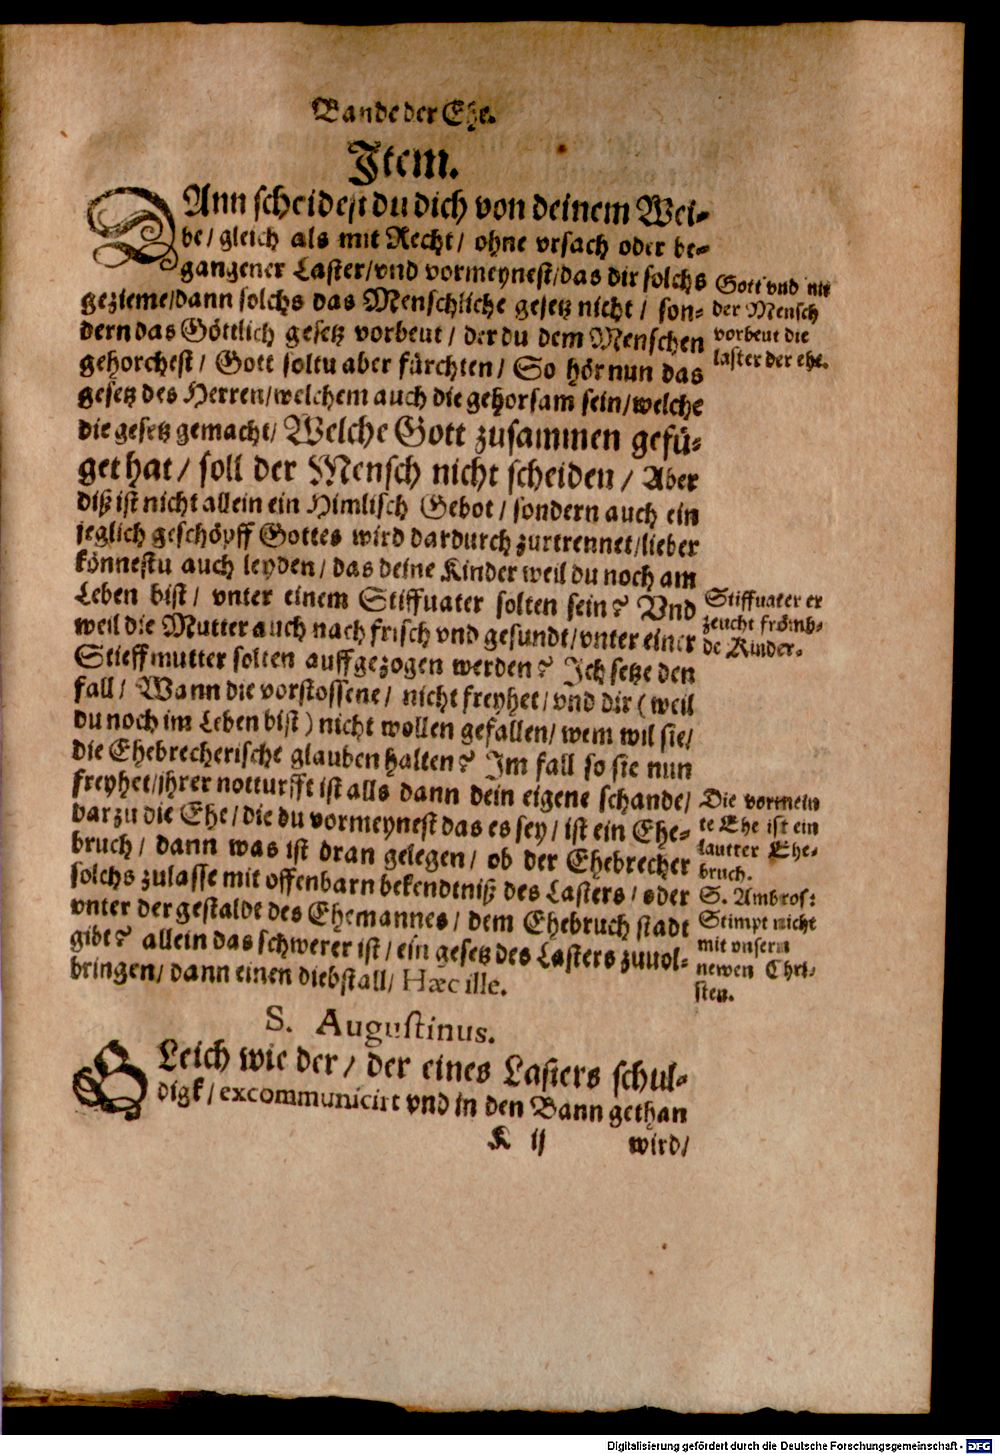 Bande der Ehe.
Item.
DAnn scheidest du dich von deinem Wei-
be/ gleich als mit Recht/ ohne vrsach oder be-
gangener Laster/vnd vormeynest/das dir solchs
gezieme/dann solchs das Menschliche gesetz nicht/ son-
dern das Göttlich gesetz vorbeut/ der du dem Menschen
gehorchest/ Gott soltu aber fürchten/ So hör nun das
gesetz des Herren/welchem auch die gehorsam sein/welche
die gesetz gemacht/ Welche Gott zusammen gefü-
get hat/ soll der Mensch nicht scheiden/ Aber
diß ist nicht allein ein Himlisch Gebot/ sondern auch ein
jeglich geschöpff Gottes wird dardurch zurtrennet/lieber
könnestu auch leyden/ das deine Kinder weil du noch am
Leben bist/ vnter einem Stiffuater solten sein? Vnd
weil die Mutter auch nach frisch vnd gesundt/vnter einer
Stieffmutter solten auffgezogen werden? Ich setze den
fall/ Wann die vorstossene/ nicht freyhet/vnd dir (weil
du noch im Leben bist) nicht wollen gefallen/ wem wil sie/
die Ehebrecherische glauben halten? Im fall so sie nun
freyhet/jhrer notturfft ist alls dann dein eigene schande/
darzu die Ehe/ die du vormeynest das es sey/ ist ein Ehe-
bruch/ dann was ist dran gelegen/ ob der Ehebrecher
solchs zulasse mit offenbarn bekendtniß des Lasters/ oder
vnter der gestaldt des Ehemannes/ dem Ehebruch stadt
gibt? allein das schwerer ist/ ein gesetz des Lasters zuuol-
bringen/ dann einen diebstall/ Hæc ille.
Gott vnd nit
der Mensch
vorbeut die
laster der ehe.
Stiffuater er
zeucht frömb-
de Kinder.
Die vormein
te Ehe ist ein
lautter Ehe-
bruch.
S. Ambros:
Stimpt nicht
mit vnsern
newen Chri-
sten.
S. Augustinus.
GLeich wie der/ der eines Lasters schul-
digk/ excommunicirt vnd in den Bann gethan
K ij wird/
Digitalisierung gefördert durch die Deutsche Forschungsgemeinschaft - DFG